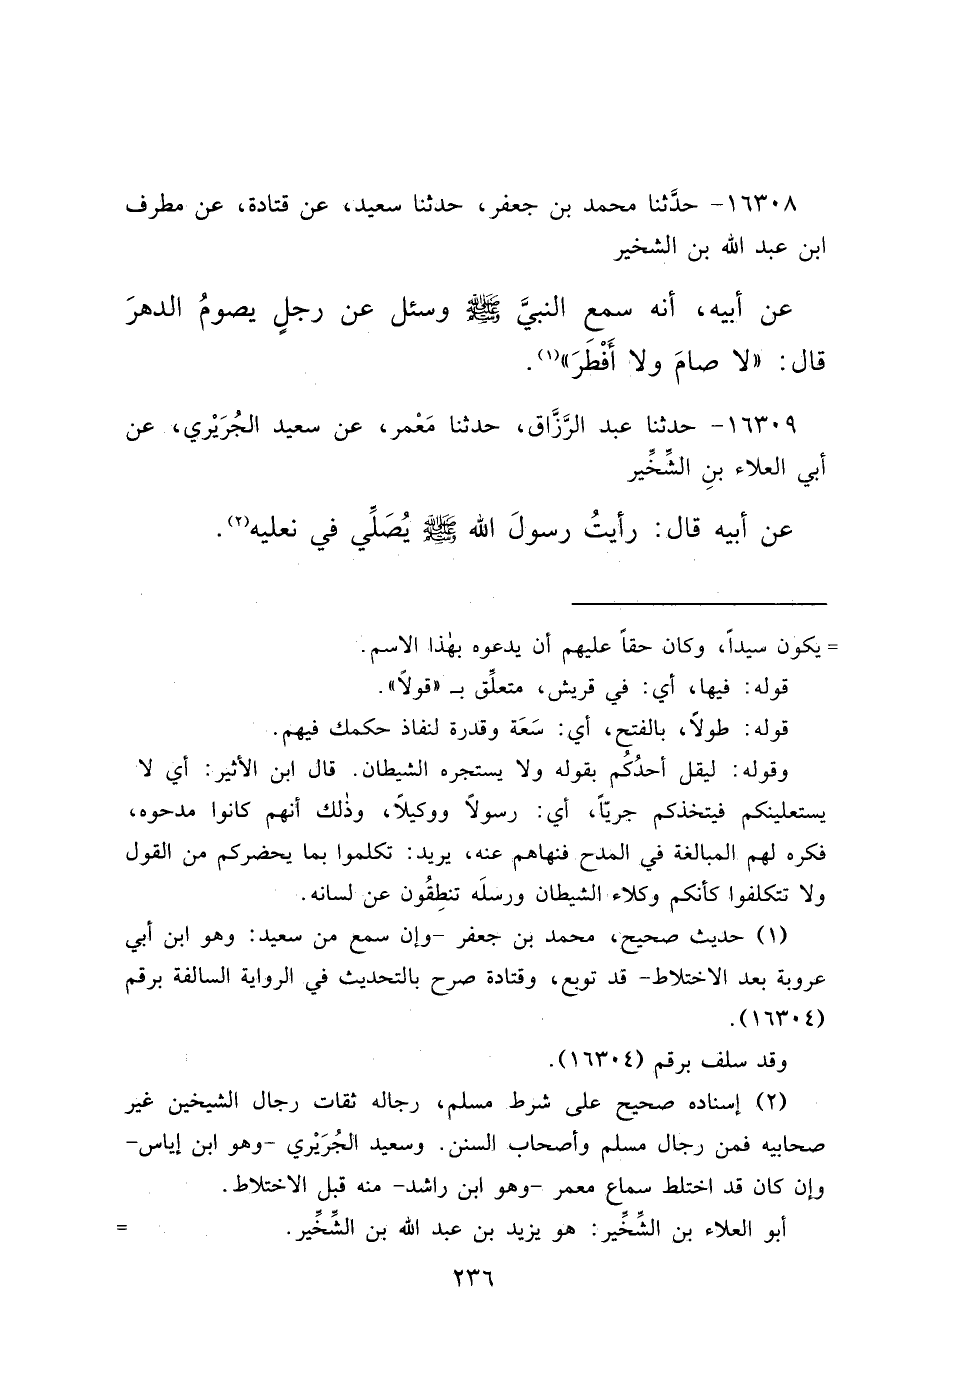 ١٦٣٠٨- حدَّثنا محمد بن جعفر، حدثنا سعيد، عن قتادة، عن مطرف
ابن عبد الله بن الشخير
عن أبيه، أنه سمع النبيَّ ﷺ وسئل عن رجلٍ يصومُ الدهرَ
قال: «لا صامَ ولا أَفْطَرَ»(١).
١٦٣٠٩- حدثنا عبد الرَّزَّاق، حدثنا مَعْمر، عن سعيد الجُرَيْري، عن
أبي العلاء بنِ الشِّخِّير
عن أبيه قال: رأيتُ رسولَ الله ﷺ يُصَلِّي في نعليه(٢).
= يكون سيداً، وكان حقاً عليهم أن يدعوه بهٰذا الاسم.
قوله: فيها، أي: في قريش، متعلِّق بـ «قولاً».
قوله: طولاً، بالفتح، أي: سَعَة وقدرة لنفاذ حكمك فيهم.
وقوله: ليقل أحدُكُم بقوله ولا يستجره الشيطان. قال ابن الأثير: أي لا
يستعلينكم فيتخذكم جريّاً، أي: رسولاً ووكيلاً، وذٰلك أنهم كانوا مدحوه،
فكره لهم المبالغة في المدح فنهاهم عنه، يريد: تكلموا بما يحضركم من القول
ولا تتكلفوا كأنكم وكلاء الشيطان ورسلَه تنطِقُون عن لسانه.
(١) حديث صحيح، محمد بن جعفر -وإن سمع من سعيد: وهو ابن أبي
عروبة بعد الاختلاط- قد توبع، وقتادة صرح بالتحديث في الرواية السالفة برقم
(١٦٣٠٤).
وقد سلف برقم (١٦٣٠٤).
(٢) إسناده صحيح على شرط مسلم، رجاله ثقات رجال الشيخين غير
صحابيه فمن رجال مسلم وأصحاب السنن. وسعيد الجُرَيْري -وهو ابن إياس-
وإن كان قد اختلط سماع معمر -وهو ابن راشد- منه قبل الاختلاط.
أبو العلاء بن الشِّخِّير: هو يزيد بن عبد الله بن الشِّخِّير. =
٢٣٦